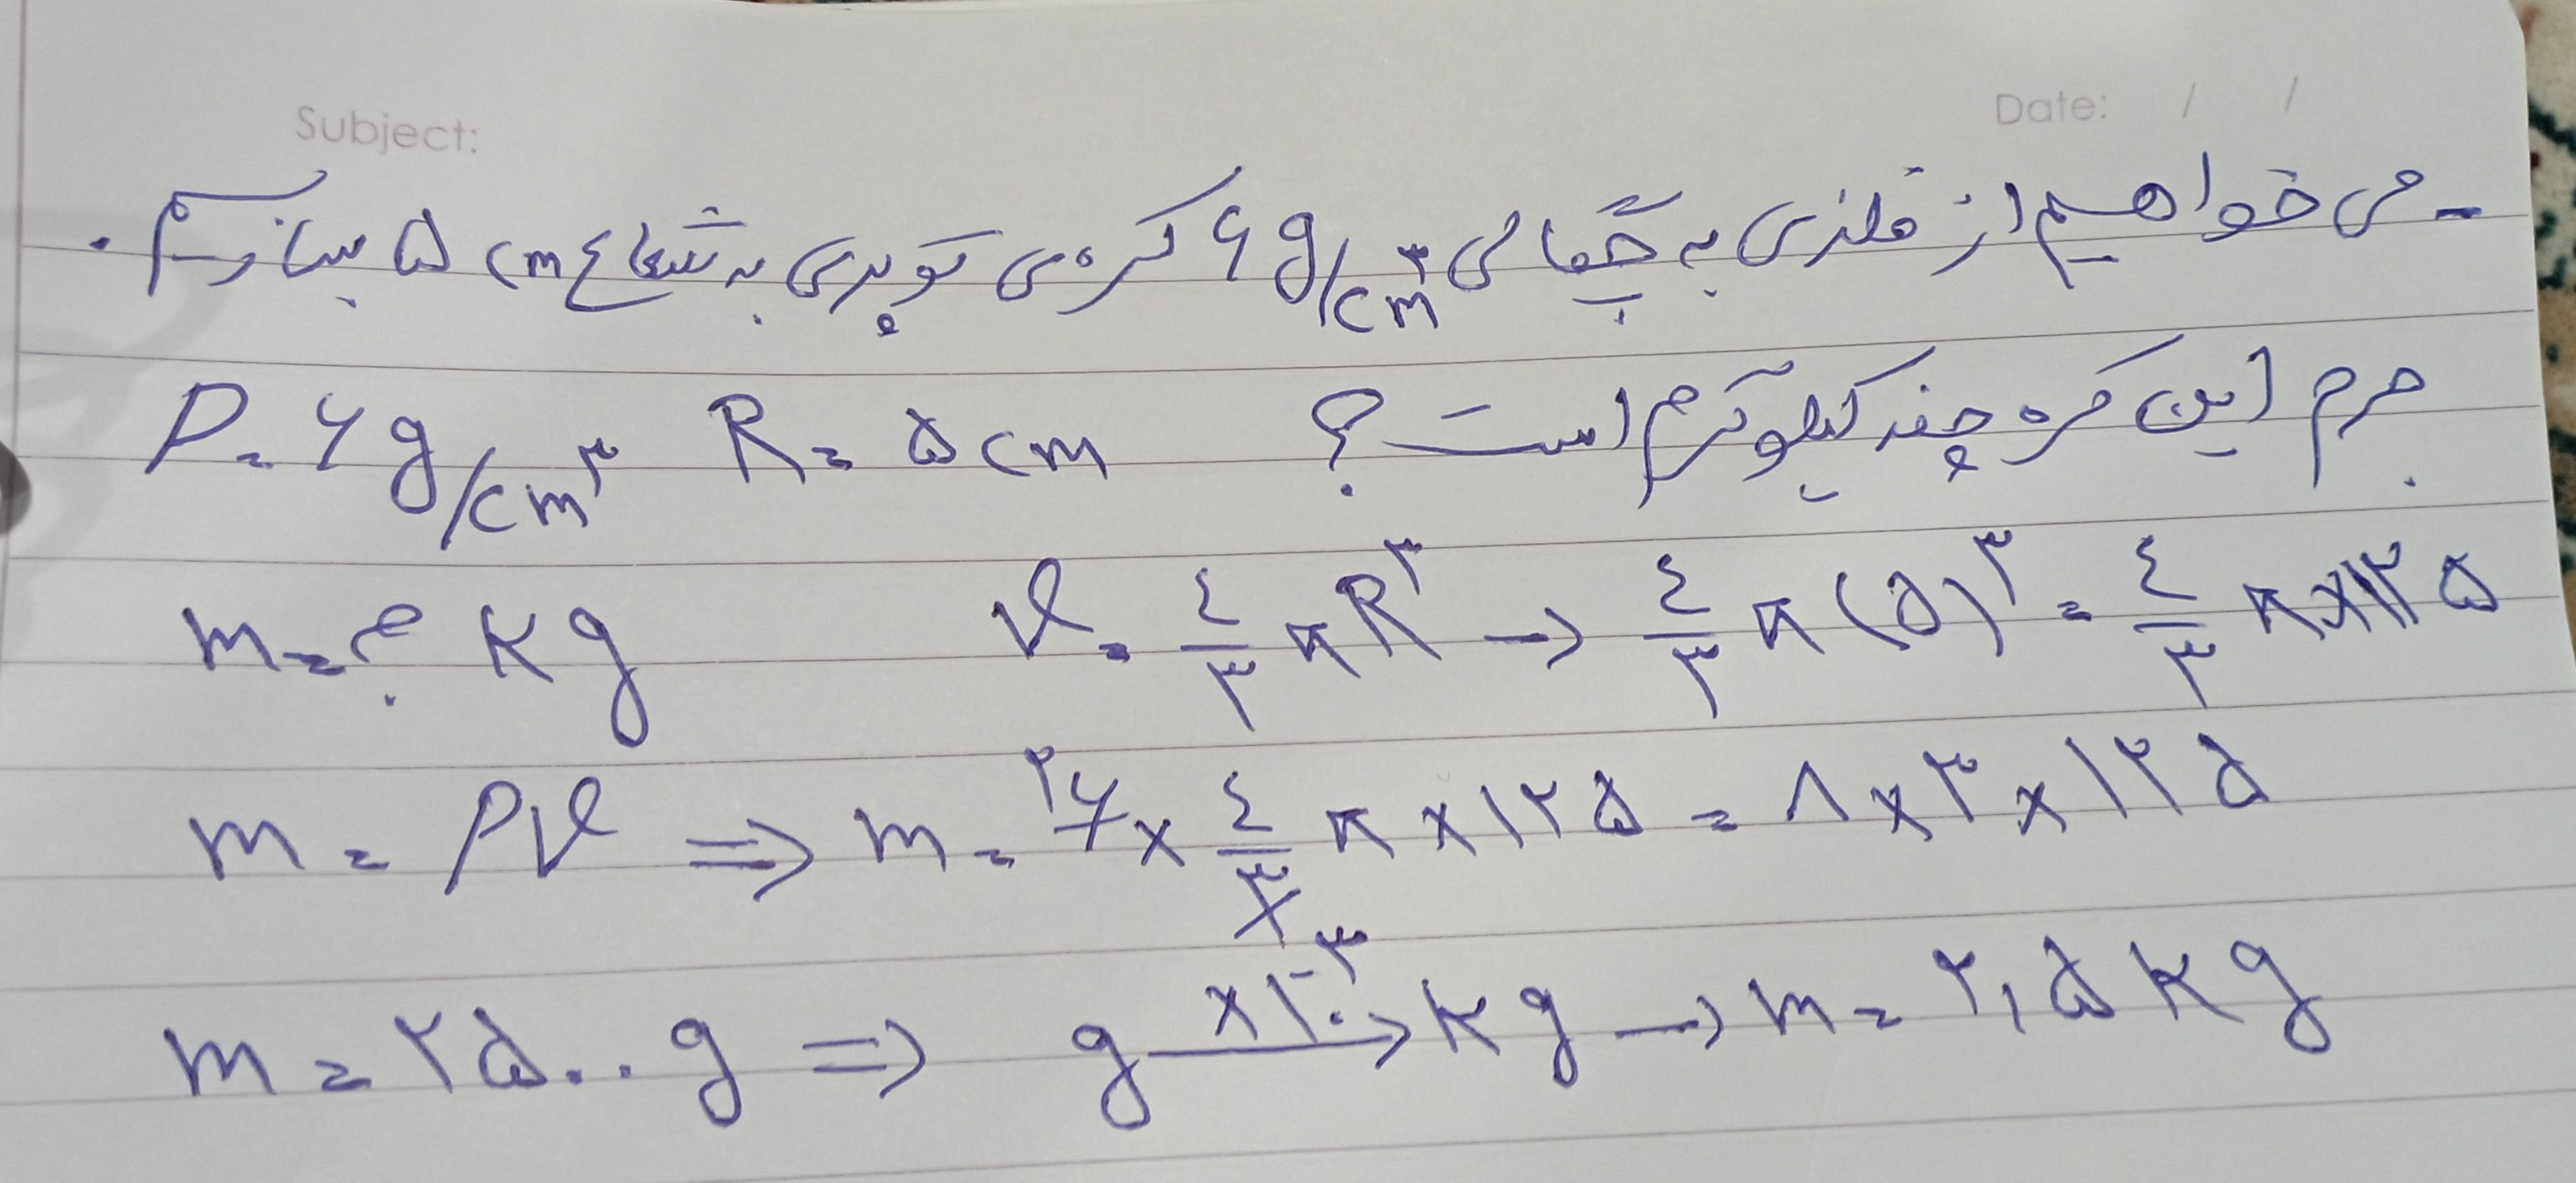 Subject: Date: / /
- می خواهیم از فلزی به چگالی ۶ g/cm۳ کره ی توپری به شعاع ۵ cm بسازیم.
جرم این کره چند کیلوگرم است؟ R = ۵ cm ρ = ۶ g/cm۳
m = ? kg V = ۴/۳ π R۳ → ۴/۳ π (۵)۳ = ۴/۳ π × ۱۲۵
m = ρV ⇒ m = ۲ ۶ × ۴/۳ π × ۱۲۵ = ۸ × ۳ × ۱۲۵
m = ۲۵۰۰ g ⇒ g ×۱۰-۳→ kg → m = ۲,۵ kg